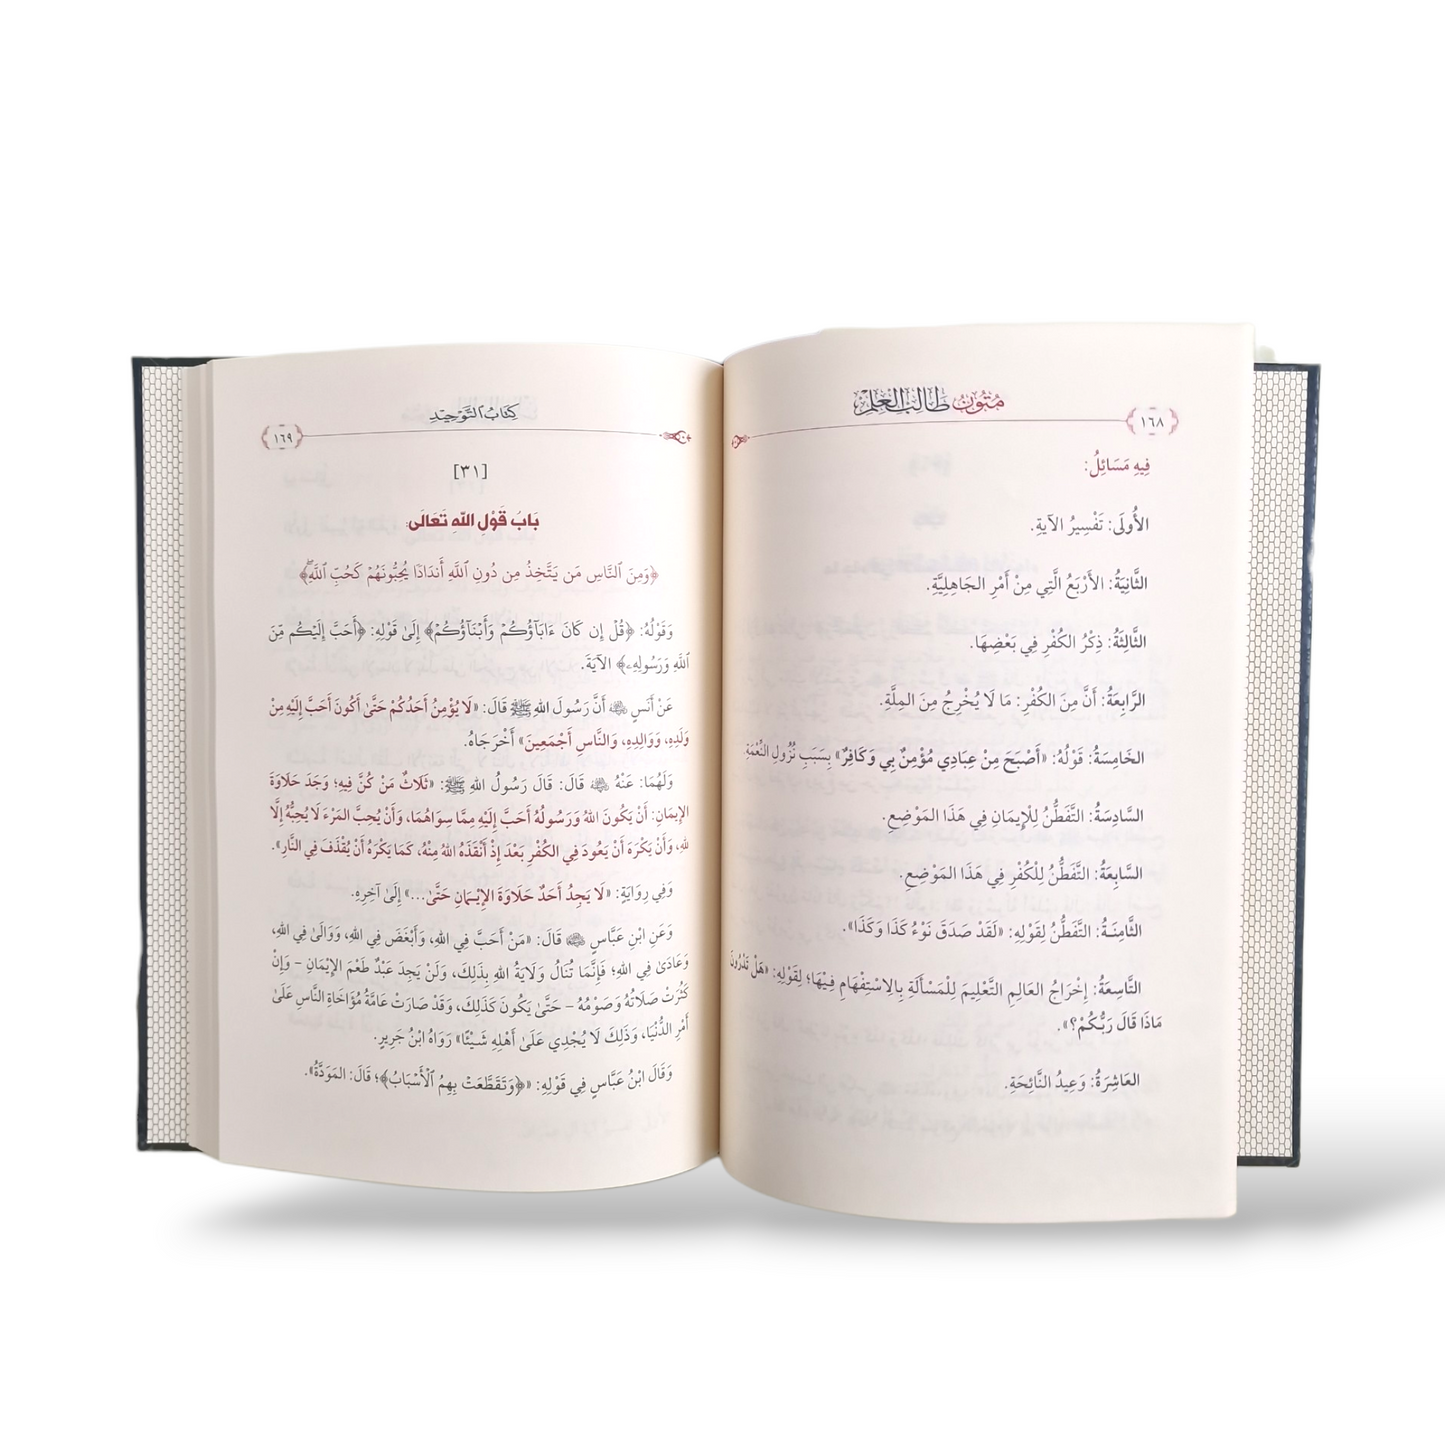 مُتُونُ طَالِبِ الْعِلْمِ
١٦٨
فِيهِ مَسَائِلُ:
الأُولَى: تَفْسِيرُ الآيَةِ.
الثَّانِيَةُ: الأَرْبَعُ الَّتِي مِنْ أَمْرِ الجَاهِلِيَّةِ.
الثَّالِثَةُ: ذِكْرُ الكُفْرِ فِي بَعْضِهَا.
الرَّابِعَةُ: أَنَّ مِنَ الكُفْرِ: مَا لَا يُخْرِجُ مِنَ المِلَّةِ.
الخَامِسَةُ: قَوْلُهُ: «أَصْبَحَ مِنْ عِبَادِي مُؤْمِنٌ بِي وَكَافِرٌ» بِسَبَبِ نُزُولِ النِّعْمَةِ
السَّادِسَةُ: التَّفَطُّنُ لِلْإِيمَانِ فِي هَذَا المَوْضِعِ.
السَّابِعَةُ: التَّفَطُّنُ لِلْكُفْرِ فِي هَذَا المَوْضِعِ.
الثَّامِنَةُ: التَّفَطُّنُ لِقَوْلِهِ: «لَقَدْ صَدَقَ نَوْءُ كَذَا وَكَذَا».
التَّاسِعَةُ: إِخْرَاجُ العَالِمِ التَّعْلِيمَ لِلْمَسْأَلَةِ بِالِاسْتِفْهَامِ فِيْهَا؛ لِقَوْلِهِ: «هَلْ تَدْرُونَ
مَاذَا قَالَ رَبُّكُمْ؟».
العَاشِرَةُ: وَعِيدُ النَّائِحَةِ.
كِتَابُ التَّوْحِيدِ
١٦٩
[٣١]
بَابُ قَوْلِ اللهِ تَعَالَى:
﴿وَمِنَ ٱلنَّاسِ مَن يَتَّخِذُ مِن دُونِ ٱللَّهِ أَندَادًا يُحِبُّونَهُمْ كَحُبِّ ٱللَّهِ﴾
وَقَوْلُهُ: ﴿قُلْ إِن كَانَ ءَابَآؤُكُمْ وَأَبْنَآؤُكُمْ﴾ إِلَىٰ قَوْلِهِ: ﴿أَحَبَّ إِلَيْكُم مِّنَ
ٱللَّهِ وَرَسُولِهِۦ﴾ الآيَةَ.
عَنْ أَنَسٍ ﵁ أَنَّ رَسُولَ اللهِ ﷺ قَالَ: «لَا يُؤْمِنُ أَحَدُكُمْ حَتَّىٰ أَكُونَ أَحَبَّ إِلَيْهِ مِنْ
وَلَدِهِ، وَوَالِدِهِ، وَالنَّاسِ أَجْمَعِينَ» أَخْرَجَاهُ.
وَلَهُمَا: عَنْهُ ﵁ قَالَ: قَالَ رَسُولُ اللهِ ﷺ: «ثَلَاثٌ مَنْ كُنَّ فِيهِ؛ وَجَدَ حَلَاوَةَ
الإِيمَانِ: أَنْ يَكُونَ اللهُ وَرَسُولُهُ أَحَبَّ إِلَيْهِ مِمَّا سِوَاهُمَا، وَأَنْ يُحِبَّ المَرْءَ لَا يُحِبُّهُ إِلَّا
لِلهِ، وَأَنْ يَكْرَهَ أَنْ يَعُودَ فِي الكُفْرِ بَعْدَ إِذْ أَنْقَذَهُ اللهُ مِنْهُ، كَمَا يَكْرَهُ أَنْ يُقْذَفَ فِي النَّارِ».
وَفِي رِوَايَةٍ: «لَا يَجِدُ أَحَدٌ حَلَاوَةَ الإِيمَانِ حَتَّىٰ...» إِلَىٰ آخِرِهِ.
وَعَنِ ابْنِ عَبَّاسٍ ﵄ قَالَ: «مَنْ أَحَبَّ فِي اللهِ، وَأَبْغَضَ فِي اللهِ، وَوَالَىٰ فِي اللهِ،
وَعَادَىٰ فِي اللهِ؛ فَإِنَّمَا تُنَالُ وَلَايَةُ اللهِ بِذَلِكَ، وَلَنْ يَجِدَ عَبْدٌ طَعْمَ الإِيْمَانِ – وَإِنْ
كَثُرَتْ صَلَاتُهُ وَصَوْمُهُ – حَتَّىٰ يَكُونَ كَذَلِكَ، وَقَدْ صَارَتْ عَامَّةُ مُؤَاخَاةِ النَّاسِ عَلَىٰ
أَمْرِ الدُّنْيَا، وَذَلِكَ لَا يُجْدِي عَلَىٰ أَهْلِهِ شَيْئًا» رَوَاهُ ابْنُ جَرِيرٍ.
وَقَالَ ابْنُ عَبَّاسٍ فِي قَوْلِهِ: «﴿وَتَقَطَّعَتْ بِهِمُ ٱلْأَسْبَابُ﴾؛ قَالَ: المَوَدَّةُ».